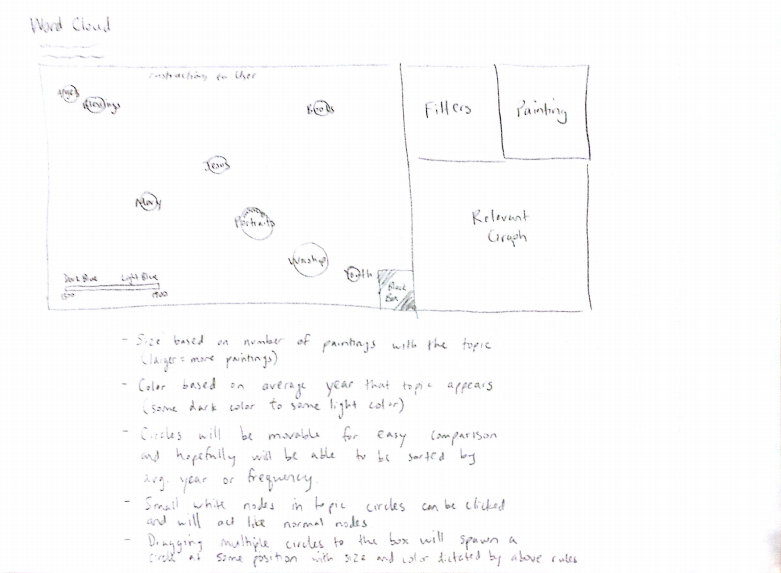 Word Cloud
Instructions on User
Angels
Blessings
Books
Jesus
Mary
Portraits
Worship
Youth
Dark Blue Light Blue
1500 1900
Black
Box
Filters
Painting
Relevant
Graph
- Size based on number of paintings with the topic
(larger = more paintings)
- Color based on average year that topic appears
(some dark color to some light color)
- Circles will be movable for easy comparison
and hopefully will be able to be sorted by
avg. year or frequency.
- Small white nodes in topic circles can be clicked
and will act like normal nodes
- Dragging multiple circles to the box will spawn a
circle at some position with size and color dictated by above rules